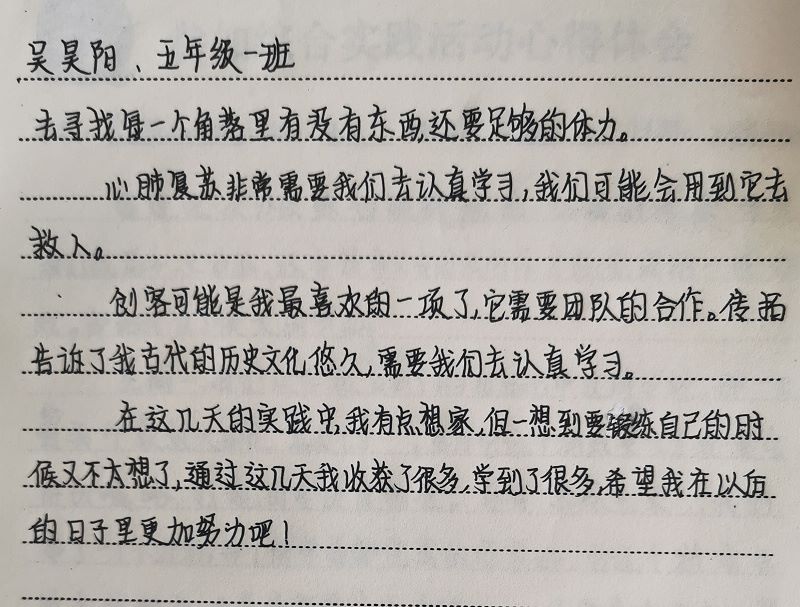 吴昊阳、五年级一班
去寻找每一个角落里有没有东西,还要足够的体力。
心肺复苏非常需要我们去认真学习,我们可能会用到它去
救人。
创客可能是我最喜欢的一项了,它需要团队的合作。传拓
告诉了我古代的历史文化悠久,需要我们去认真学习。
在这几天的实践中,我有点想家,但一想到要锻练自己的时
候又不太想了,通过这几天我收获了很多,学到了很多,希望我在以后
的日子里更加努力吧!